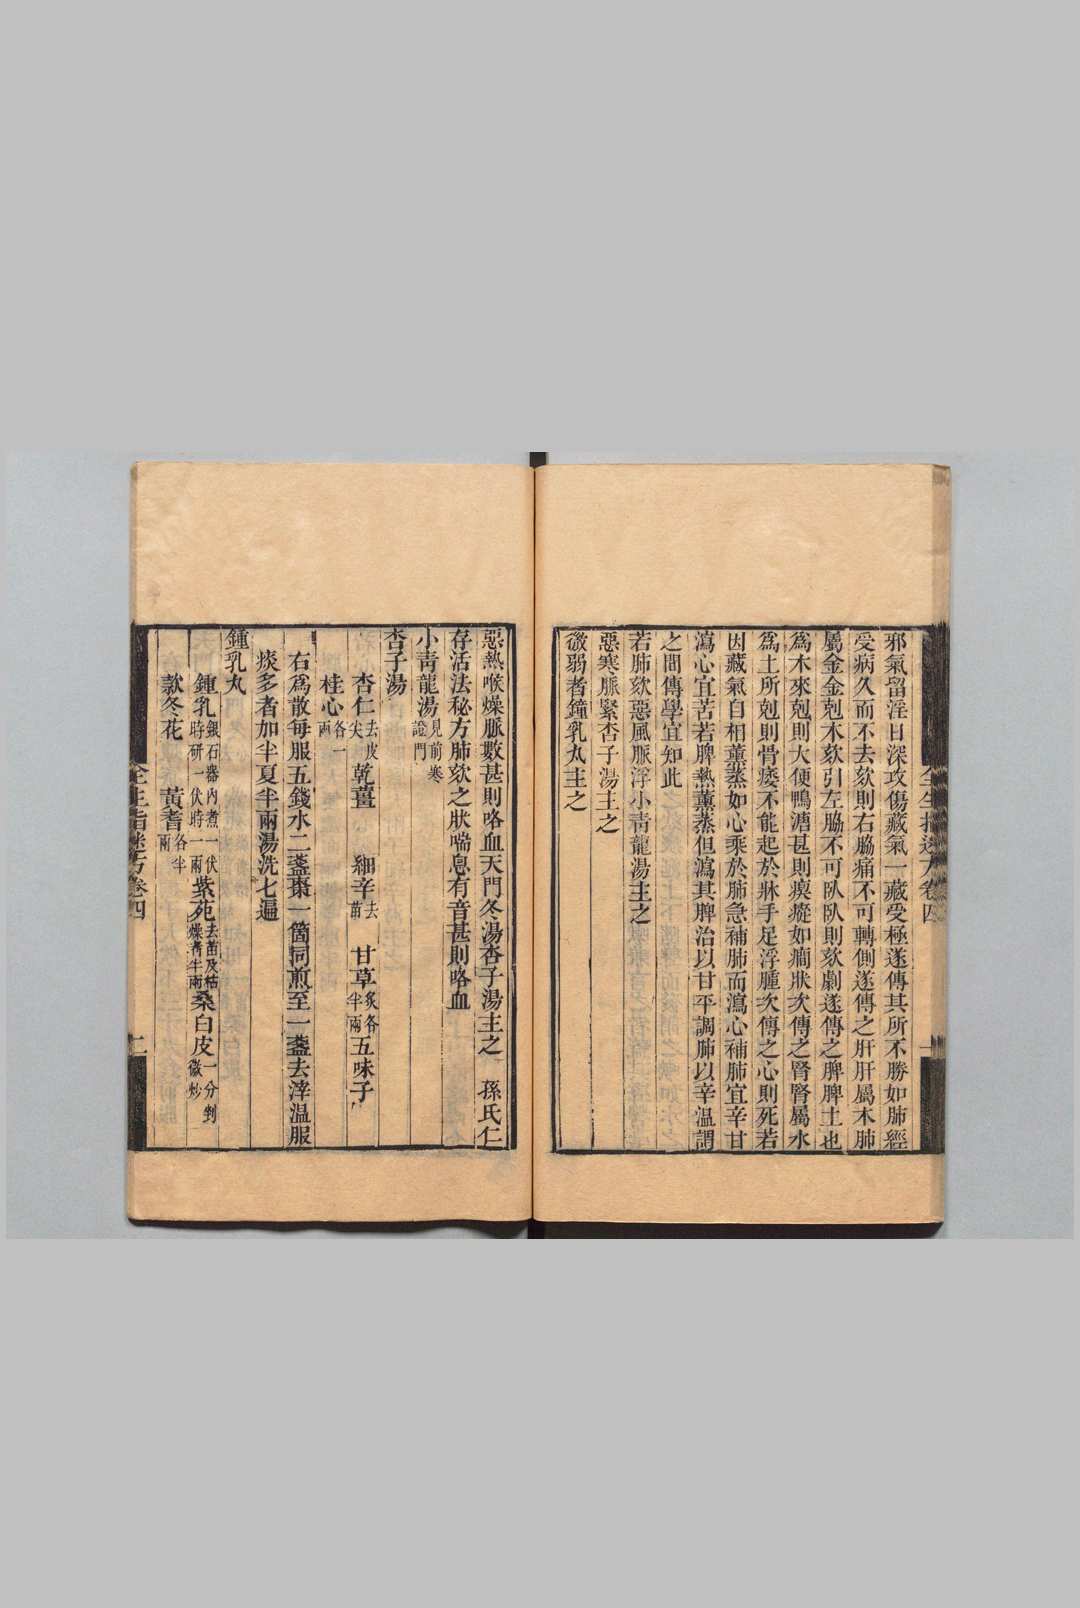 邪氣留淫日深攻傷藏氣一藏受極遂傳其所不勝如肺經
受病久而不去欬則右脇痛不可轉側遂傳之肝肝屬木肺
屬金金剋木欬引左脇不可臥臥則欬劇遂傳之脾脾土也
爲木來剋則大便鴨溏甚則瘈瘲如癎狀次傳之腎腎屬水
爲土所剋則骨痿不能起於牀手足浮腫次傳之心則死若
因藏氣自相薰蒸如心乘於肺急補肺而瀉心補肺宜辛甘
瀉心宜苦若脾熱薰蒸但瀉其脾治以甘平調肺以辛溫謂
之間傳學宜知此
若肺欬惡風脈浮小靑龍湯主之
惡寒脈緊杏子湯主之
微弱者鐘乳丸主之
全生指迷方卷四
一
惡熱喉燥脈數甚則咯血天門冬湯杏子湯主之　孫氏仁
存活法秘方肺欬之狀喘息有音甚則咯血
小靑龍湯見前寒證門
杏子湯
杏仁去皮尖　乾薑　細辛去苗　甘草炙各半兩　五味子
桂心各一兩
右爲散每服五錢水二盞棗一箇同煎至一盞去滓溫服
痰多者加半夏半兩湯洗七遍
鍾乳丸
鍾乳銀石器內煮一伏時研一伏時一兩　紫苑去苗及枯燥者半兩　桑白皮一分剉微炒
款冬花　黃耆各半兩
全生指迷方卷四
二